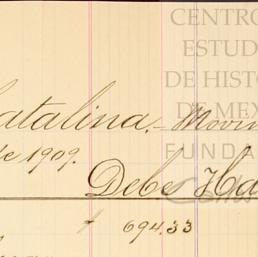 CENTRO
ESTUD
DE HISTO
DE MEX
FUNDA
atalina.- Movim
de 1909.
Debe Ha
694.33